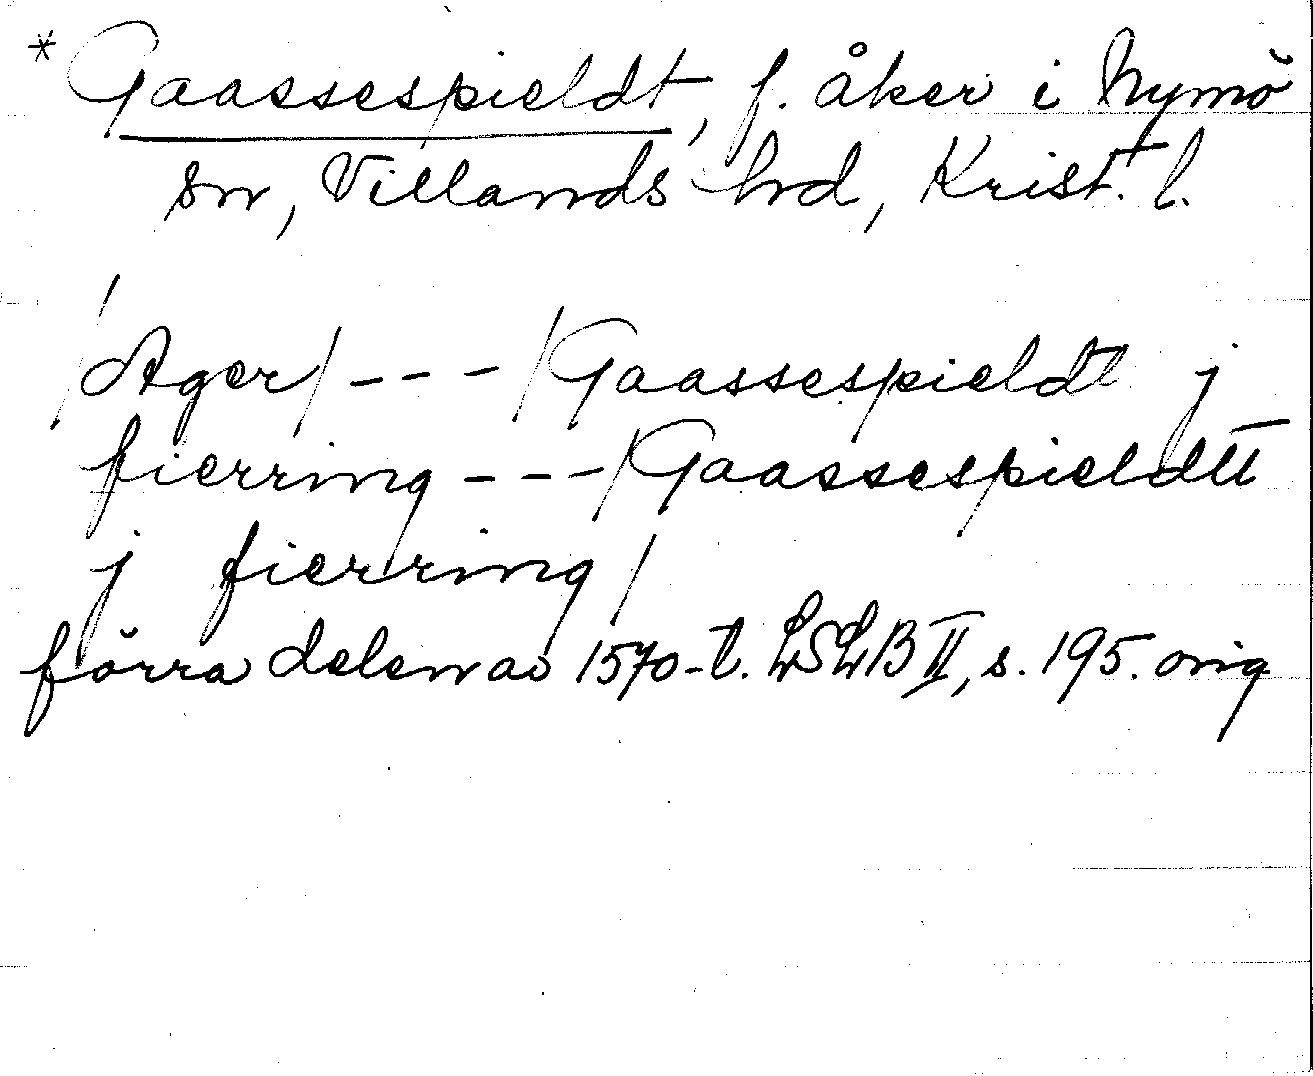 * Gaassespieldt, f. åker i Nymö
sn, Villands hd, Krist. l.
/Ager/ --- /Gaassespieldt j
fierring --- /Gaassespieldtt
j fierring/
förra delen av 1570-t. LSLB II, s. 195. orig